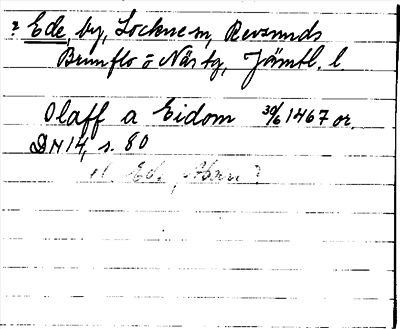 ? Ede, by, Lockne sn, Revsunds
Brunflo o Näs tg, Jämtl. l
Olaff a Eidom 30/6 1467 or.
DN 14, s. 80
Ede